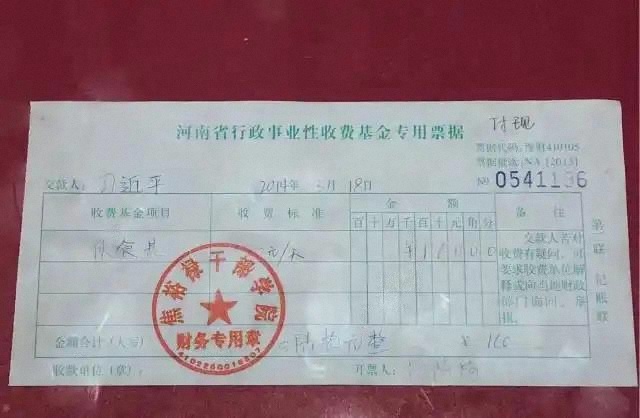 河南省行政事业性收费基金专用票据
付现
票据代码:豫财410105
票据批次:NA[2013]
№ 0541196
交款人: 习近平 2014年 3月 18日
收费基金项目 收费标准 金额 备注
百十万千百十元角分
伙食费 元/天
交款人若对
收费有疑问,可
要求收费单位解
释或向当地财政
部门询问、举
报。
第一联 记账联
焦裕禄干部学院
财务专用章
金额合计(大写) 陆拾元整 ¥ 160
收款单位(章): 开票人: